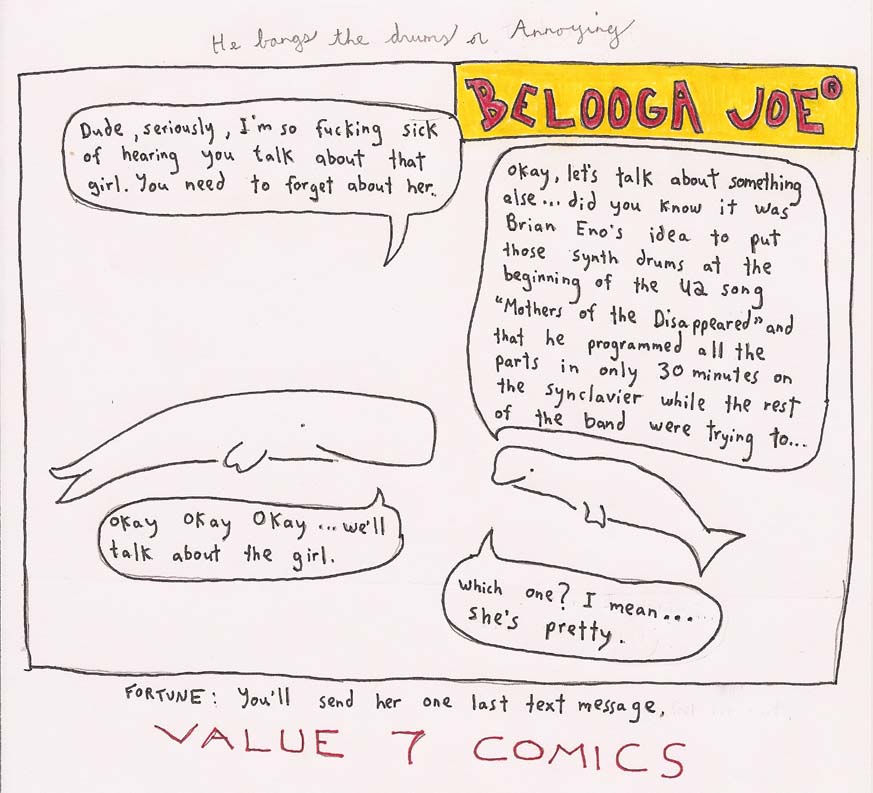 He bangs the drums or Annoying
BELOOGA JOE®
Dude, seriously, I'm so fucking sick
of hearing you talk about that
girl. You need to forget about her..
okay, let's talk about something
else... did you know it was
Brian Eno's idea to put
those synth drums at the
beginning of the U2 song
"Mothers of the Disappeared" and
that he programmed all the
parts in only 30 minutes on
the synclavier while the rest
of the band were trying to...
okay okay okay...we'll
talk about the girl.
which one? I mean...
she's pretty.
FORTUNE: You'll send her one last text message,
VALUE 7 COMICS